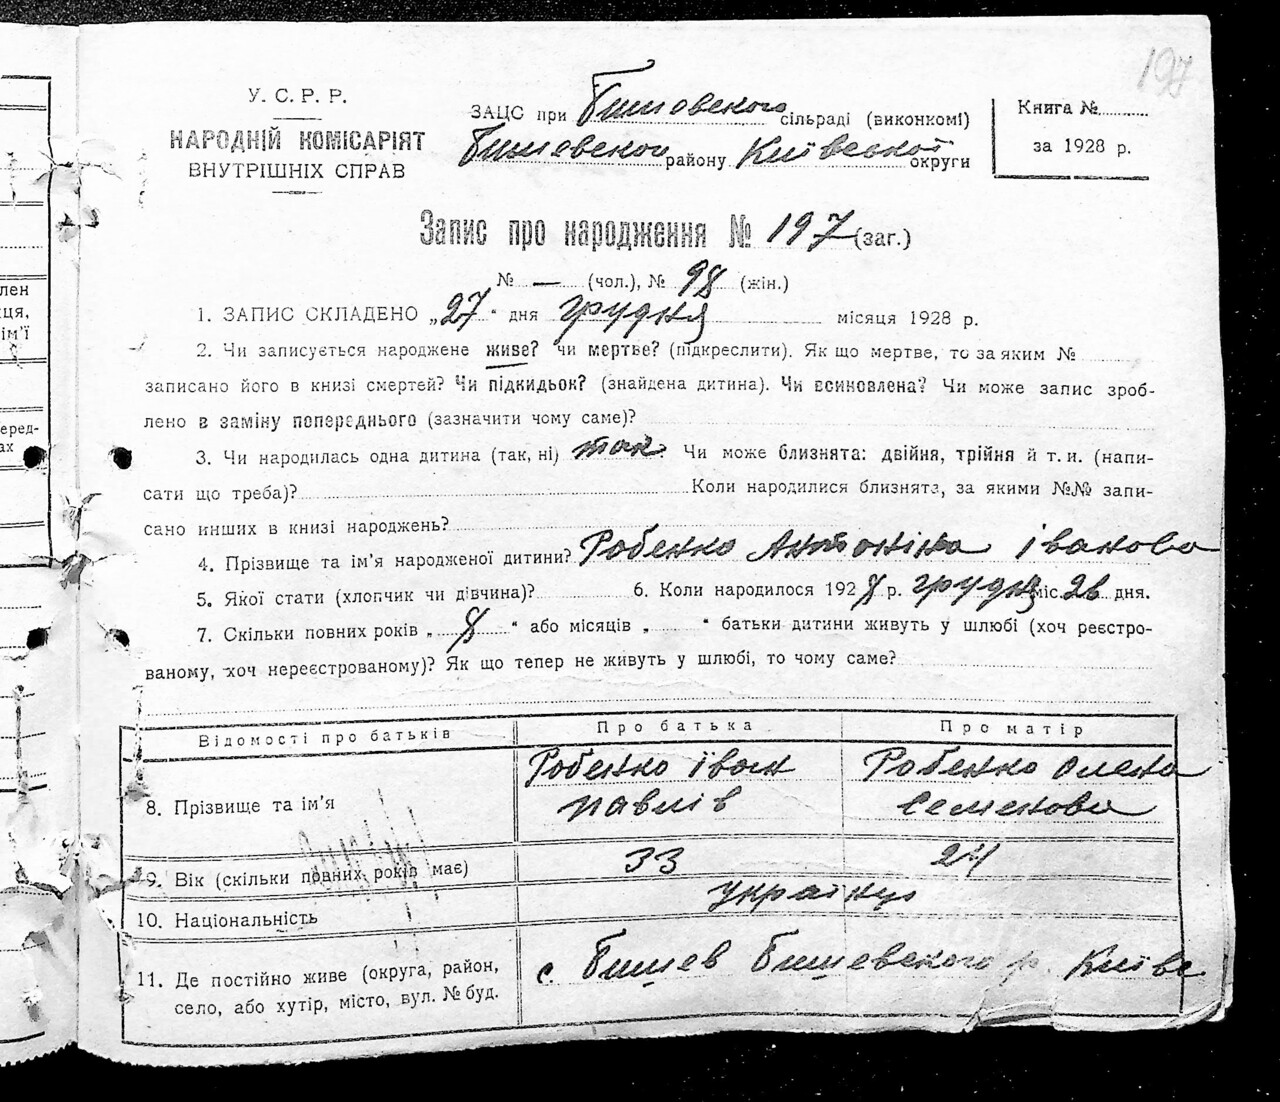 197
У. С. Р. Р.
НАРОДНІЙ КОМІСАРІЯТ
ВНУТРІШНІХ СПРАВ
ЗАЦС при Бишовского сільраді (виконкомі)
Бишевской району Київської округи
Книга №
за 1928 р.
Запис про народження № 197 (заг.)
№ — (чол.), № 98 (жін.)
1. ЗАПИС СКЛАДЕНО „27" дня грудня місяця 1928 р.
2. Чи записується народжене живе? чи мертве? (підкреслити). Як що мертве, то за яким №
записано його в книзі смертей? Чи підкидьок? (знайдена дитина). Чи всиновлена? Чи може запис зроб-
лено в заміну попереднього (зазначити чому саме)?
3. Чи народилась одна дитина (так, ні) так. Чи може близнята: двійня, трійня й т. и. (напи-
сати що треба)? Коли народилися близнята, за якими №№ запи-
сано инших в книзі народжень?
4. Прізвище та ім'я народженої дитини? Робенко Антоніна Іванова
5. Якої стати (хлопчик чи дівчина)? 6. Коли народилося 1928 р. грудня міс. 26 дня.
7. Скільки повних років „8" або місяців „ " батьки дитини живуть у шлюбі (хоч реєстро-
ваному, хоч нереєстрованому)? Як що тепер не живуть у шлюбі, то чому саме?
Відомості про батьків Про батька Про матір
8. Прізвище та ім'я Робенко Іван Павлів Робенко Олена Семенова
9. Вік (скільки повних років має) 33 24
10. Національність українці
11. Де постійно живе (округа, район,
село, або хутір, місто, вул. № буд.
с. Бишев Бишевского р. Київс
лен
ця,
ім'ї
еред-
ах